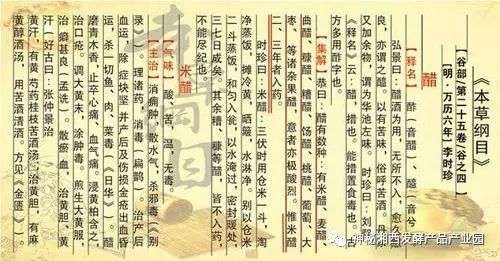 《本草纲目》
【谷部·第二十五卷(谷之四)
【明·万历六年·李时珍】
醋
【释名】 酢(音醋)、醯(音兮)
弘景曰:醋酒为用,无所不入,愈久愈
良,亦谓之醯。以有苦味,俗呼苦酒。丹家
又加余物,谓为华池左味。 时珍曰:刘熙
《释名》云:醋,措也。能措置食毒也。古
方多用酢字也。
【集解】 恭曰:醋有数种:有米醋、麦醋、
曲醋、糠醋、糟醋、饧醋、桃醋,葡萄、大
枣、等诸杂果醋,意者亦极酸烈。惟米醋
二、三年者入药。
时珍曰:米醋:三伏时用仓米一斗,淘
净蒸饭,摊冷黄,晒簸,水淋净。别以仓米
二斗蒸饭,和匀入瓮,以水淹过,密封暖处,
三七日成矣。其余糯、糠等醋,皆不入药,
不能尽纪也。
米醋
【气味】 酸、苦,温,无毒。
【主治】 消痈肿,散水气,杀邪毒(《别
录》)。理诸药,消毒(扁鹊)。 治产后
血运,除症块坚,并产后及伤损金疮出血昏
运,杀一切鱼、肉、菜毒(《日华》)。醋
磨青木香,止卒心痛、血气痛。浸黄柏含之,
治口疮。调大黄末,涂肿毒。煎生大黄服,
治癖甚良(孟诜)。散瘀血,治黄疸、黄
汗(好古曰:张仲景治
黄汗,有黄芪芍药桂枝苦酒汤;治黄疸,有麻
黄醇酒汤,用苦酒清酒。方见《金匮》)。
神秘湘西发酵产品产业园